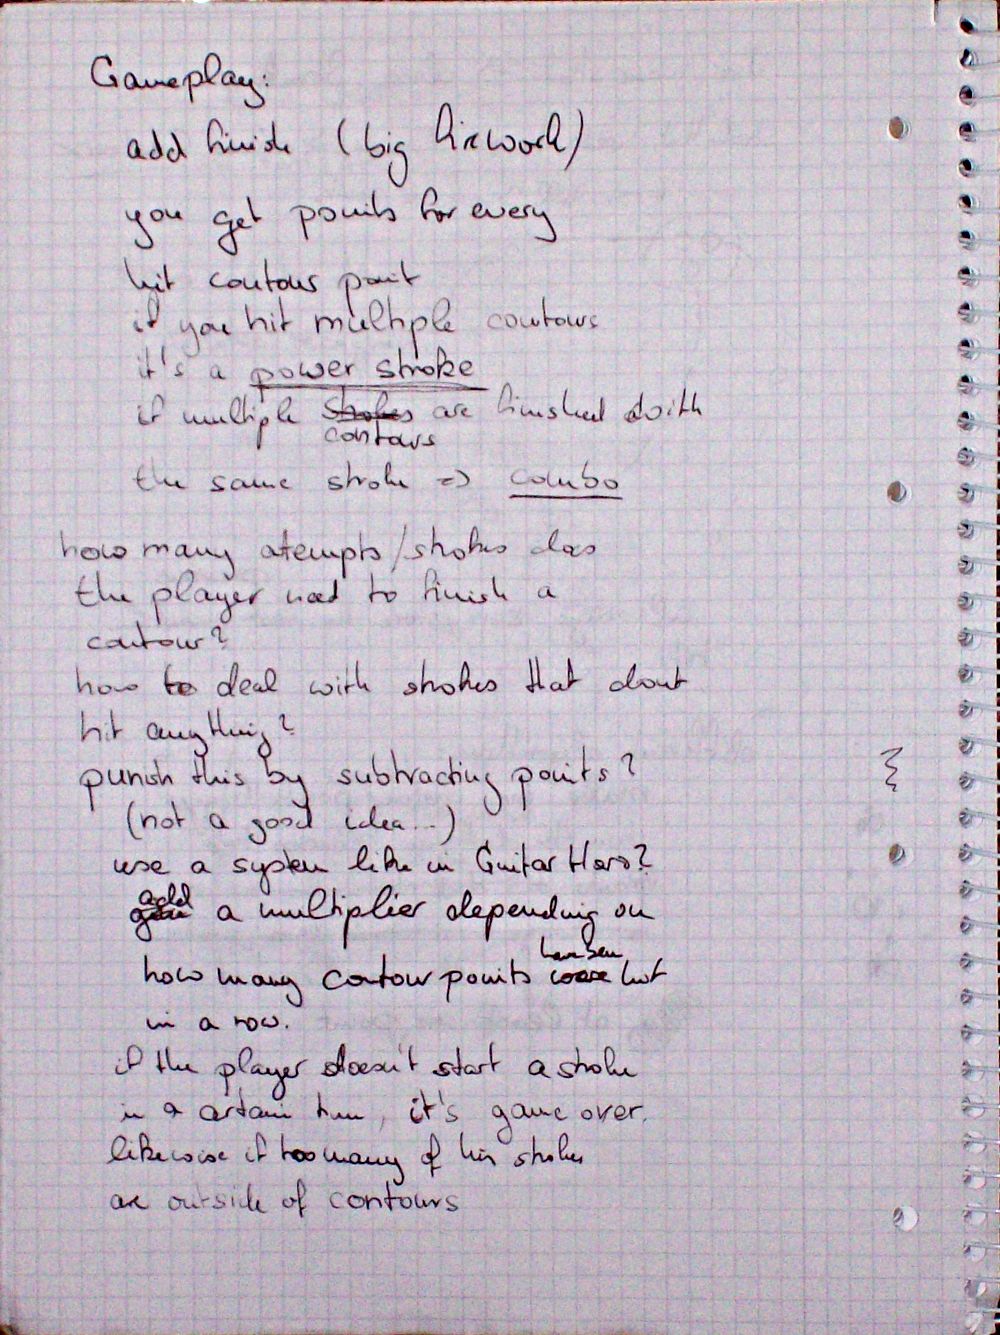 Gameplay:
add finish (big firework)
you get points for every
hit contour point
if you hit multiple contours
it's a power stroke
if multiple strokes are finished with
contours
the same stroke => combo
how many atempts/strokes does
the player need to finish a
contour?
how to deal with strokes that dont
hit anything?
punish this by subtracting points?
(not a good idea...)
use a system like in Guitar Hero?
add
a multiplier depending on
have been
how many contour points were hit
in a row.
if the player doesn't start a stroke
in a certain time, it's game over.
likewise if too many of his strokes
are outside of contours